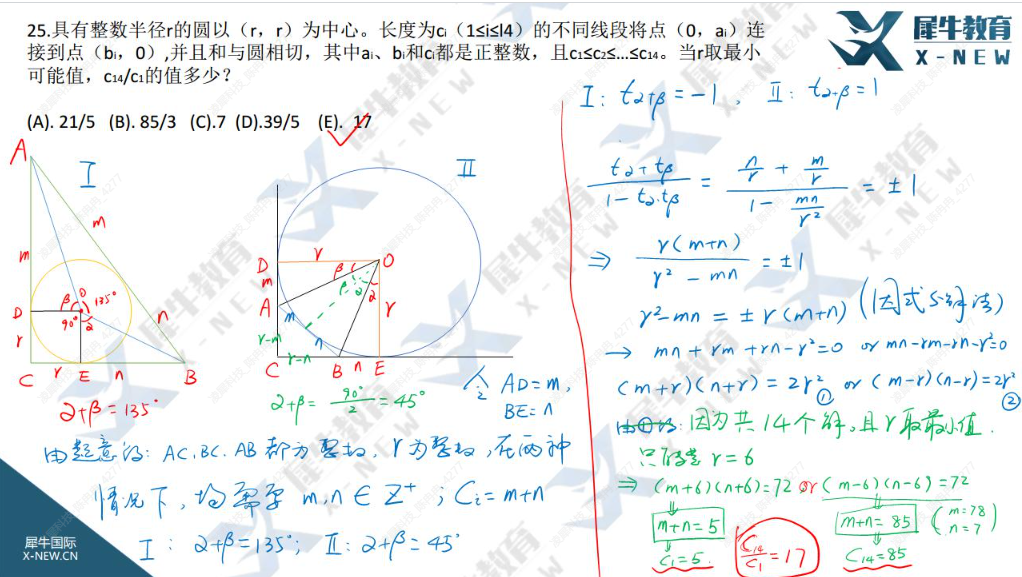 25.具有整数半径r的圆以（r，r）为中心。长度为cᵢ（1≤i≤l4）的不同线段将点（0，aᵢ）连
接到点（bᵢ，0）,并且和与圆相切，其中aᵢ、bᵢ和cᵢ都是正整数，且c₁≤c₂≤...≤c₁₄。当r取最小
可能值，c₁₄/c₁的值多少？
(A). 21/5 (B). 85/3 (C).7 (D).39/5 (E). 17
犀牛教育
X-NEW
I
A
m
m
D
β
O
135°
90°
α
n
r
C
r
E
n
B
α+β=135°
II
D
r
O
m
β
A
β
α
α
m
r
r-m
n
r-n
C
B
n
E
α+β=90°/2=45°
令 AD=m,
BE=n
由题意得: AC,BC,AB都为整数, r为整数, 在两种
情况下, 均需要 m,n∈Z⁺; Cᵢ=m+n
I: α+β=135°; II: α+β=45°
I: tα+β=-1, II: tα+β=1
(tα+tβ)/(1-tα·tβ) = (n/r+m/r)/(1-mn/r²) = ±1
⇒ r(m+n)/(r²-mn) = ±1
r²-mn=±r(m+n) (因式分解法)
→ mn+rm+rn-r²=0 or mn-rm-rn-r²=0
(m+r)(n+r)=2r² ① or (m-r)(n-r)=2r² ②
因为共14个解,且r取最小值.
只能是 r=6
⇒ (m+6)(n+6)=72 or (m-6)(n-6)=72
m+n=5
m+n=85
(m=78
n=7)
C₁=5.
C₁₄/C₁=17
C₁₄=85
犀牛国际
X-NEW.CN